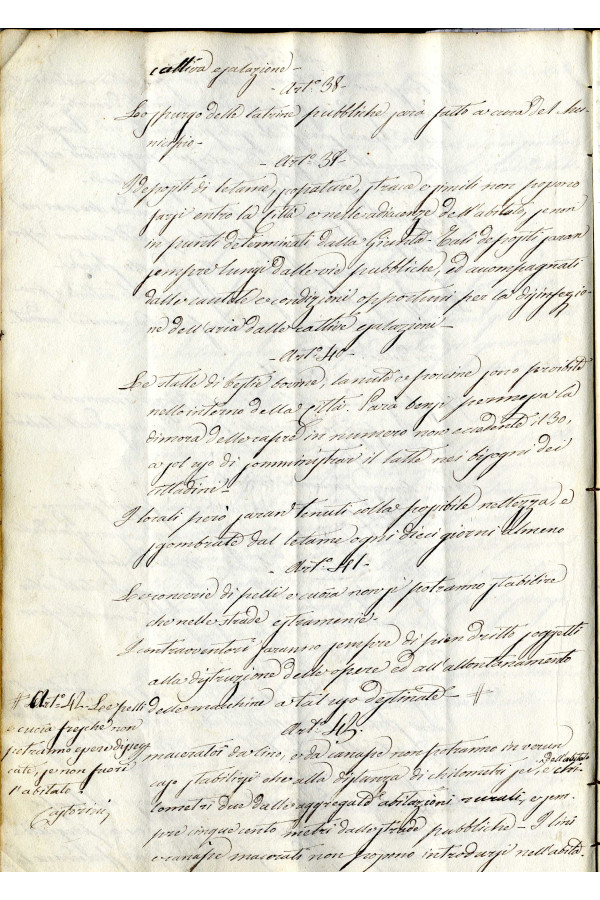 cattiva esalazione -
- Art.º 38 -
Lo spurgo delle latrine pubbliche sarà fatto a cura del Mu-
nicipio -
- Art.º 39 -
I depositi di letame, spazzature, strace e simili non possono
farsi entro la Città o nelle adiacenze dell'abitato, se non
in punti determinati dalla Giunta. Tali depositi saran
sempre lungi dalle vie pubbliche, ed accompagnati
dalle cautele e condizioni opportuni per la disinfezio-
ne dell'aria dalle cattive esalazioni -
- Art.º 40 -
Le stalle di bestie bovine, lanute e porcine sono proibite
nello interno della Città. Sarà bensì permessa la
dimora delle capre in numero non eccedente il 30,
a sol uso di somministrar il latte nei bisogni dei
cittadini -
I locali però saran tenuti colla possibile nettezza, e
sgombrate dal letame ogni dieci giorni almeno
- Art.º 41 -
Le concerie di pelli e cuoia non si potranno stabilire
che nelle strade estramenie -
I controventori saranno sempre di pien dritto soggetti
alla distruzione delle opere ed all'allontanamento
delle macchine a tal uso destinate - #
# Art.º 42 - Le pelli
e cuoia fresche non
potranno essere disec
cate, se non fuori
l'abitato
Art.º 43.
I maceratoi da lino, o da canape non potranno in verun
caso stabilirsi che alla distanza di chilometri sei, e chi-
dell'abitato
lometri due dalle aggregate abitazioni rurali, e sem-
pre cinquecento metri dalle strade pubbliche - I lini
e canape macerati non possono introdursi nell'abita-